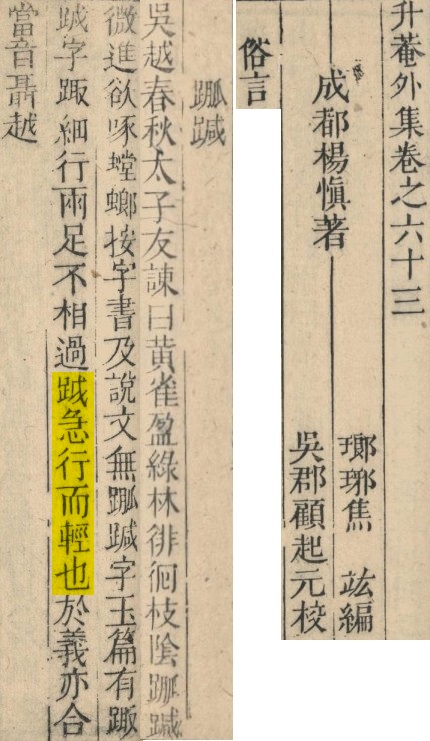 升菴外集卷之六十三
成都楊慎著
瑯琊焦竑編
吳郡顧起元校
俗言
吳越春秋太子友諫曰黃雀盈綠林徘徊枝陰
微進欲啄螳螂按字書及說文無字玉篇有踙
䟠字踙細行兩足不相過䟠急行而輕也於義亦合
當音聶越